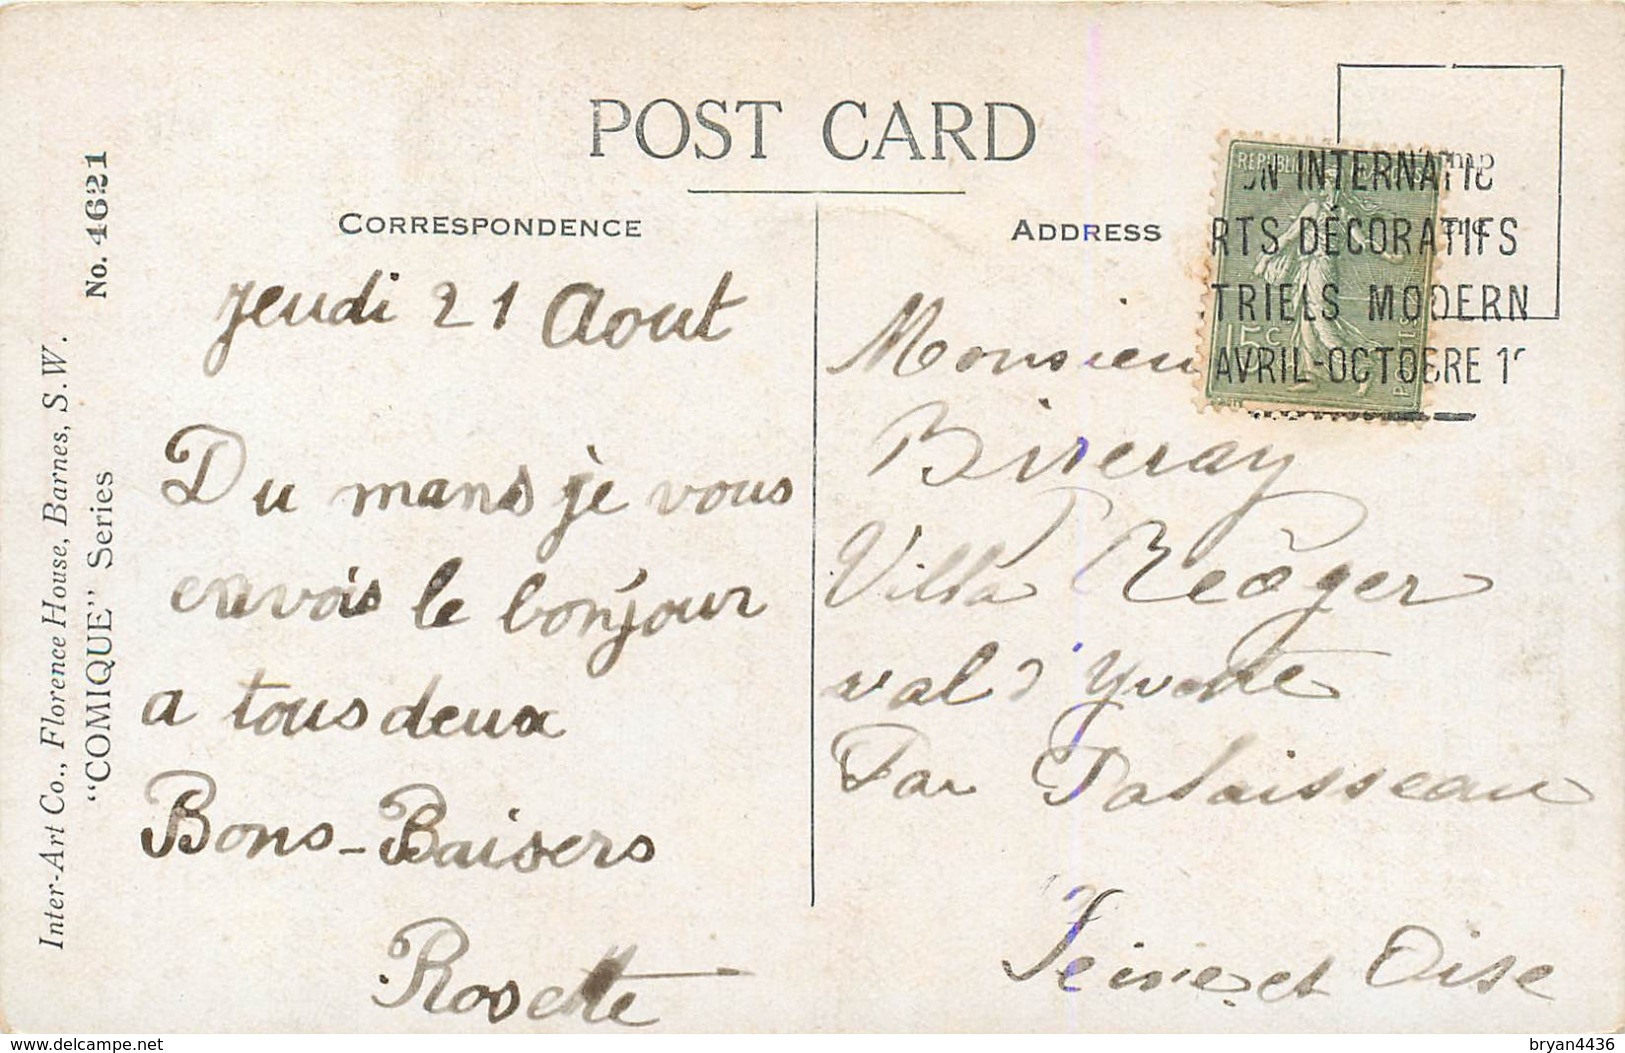 POST CARD
CORRESPONDENCE
ADDRESS
No. 4621
"COMIQUE" Series
Inter-Art Co., Florence House, Barnes, S.W.
jeudi 21 Aout
Du mans je vous
envois le bonjour
a tous deux
Bons-Baisers
Rosette
Monsieu
Villa
val d'Yvette
Par Palaisseau
Seine et Oise
ON INTERNATIO
RTS DÉCORATIFS
TRIELS MODERN
AVRIL-OCTOBRE 1
15c
delcampe.net
bryan4436